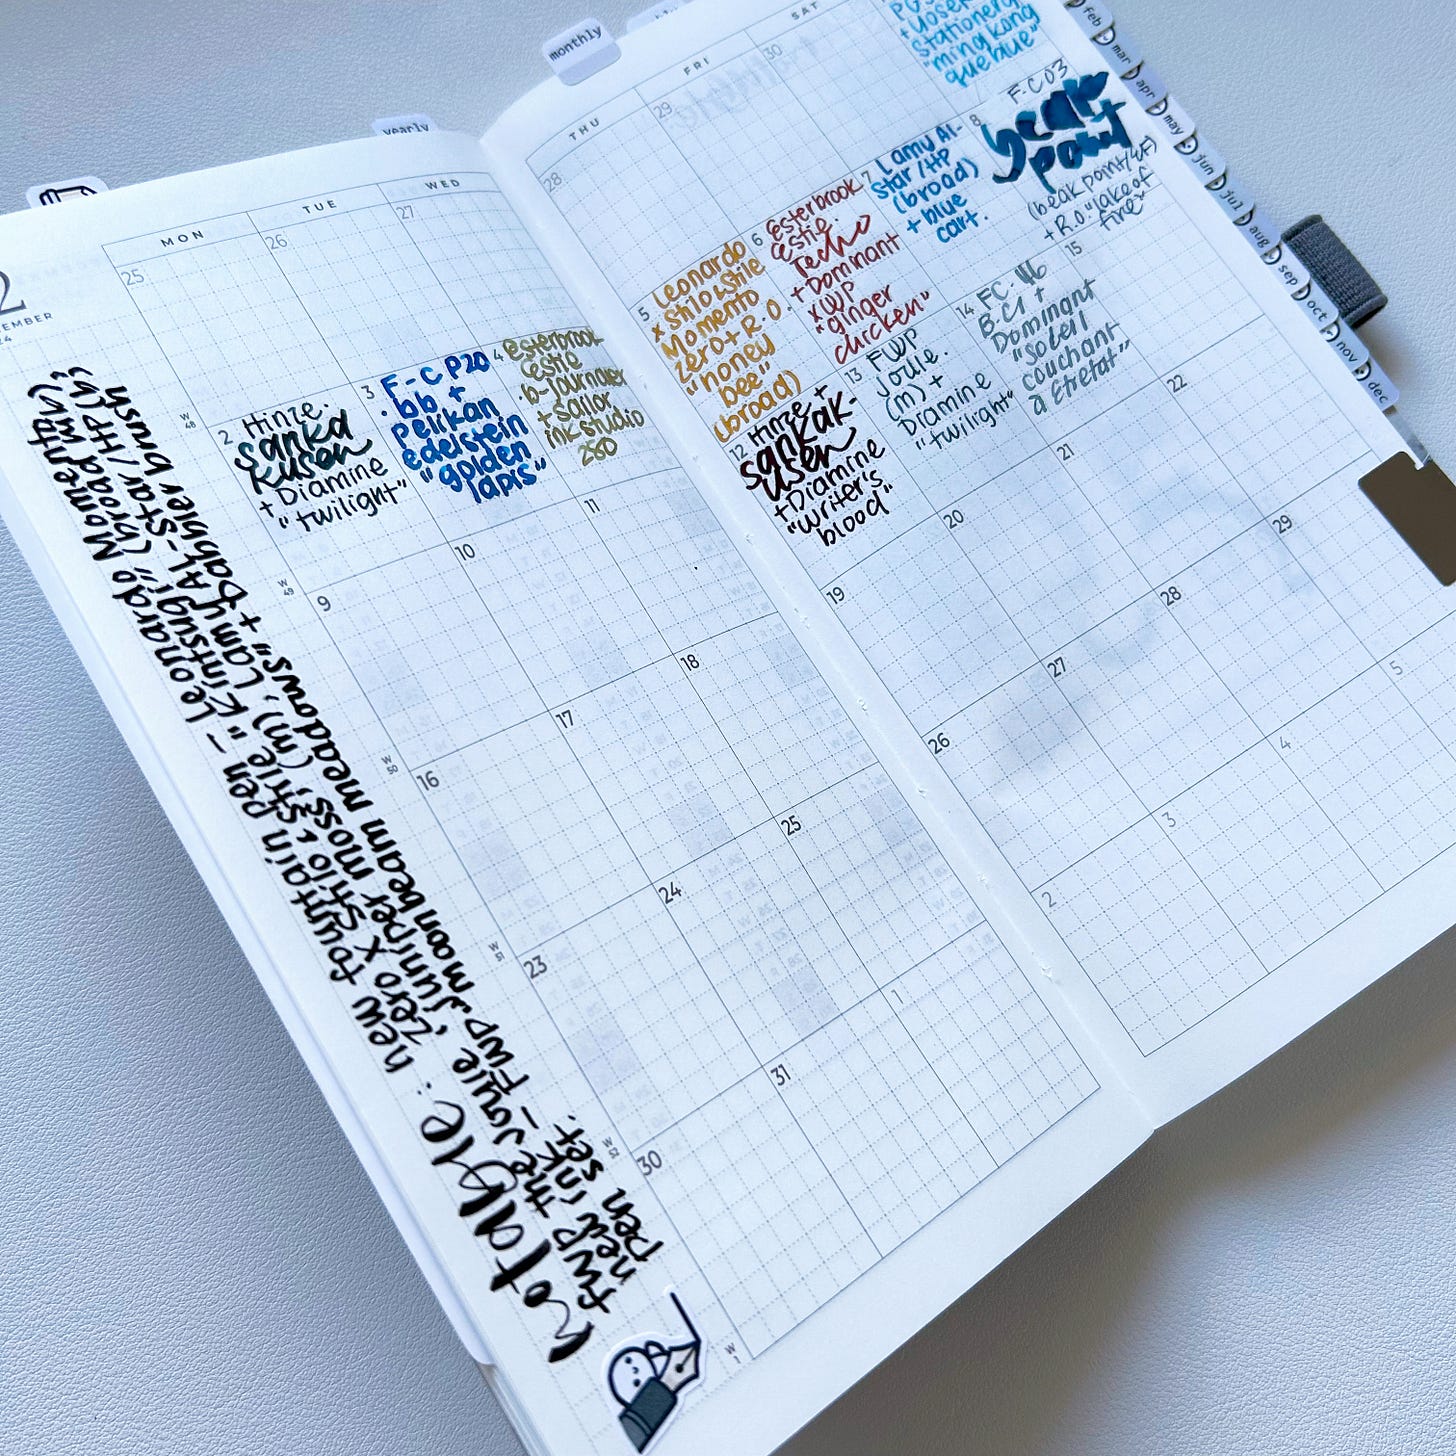 monthly
yearly
feb
mar
apr
may
jun
jul
aug
sep
oct
nov
dec
MON
TUE
WED
THU
FRI
SAT
25
26
27
28
29
30
"ming kong
que blue"
W
48
2
Hinze.
sanka
kusen
+ Diamine
"twilight"
3
F-C P20
. bb +
Pelikan
edelstein
"golden
lapis"
4
esterbrook
estie
. b-journaler
+ sailor
ink studio
280
5
Leonardo
x Stilo & Stile
Momento
zero + R.O.
"honey
bee"
(broad)
6
esterbrook
estie.
Techo
+ Dominant
x WP
"ginger
chicken"
7
Lamy Al-
Star/HP
(broad)
+ blue
cart.
8
F.C 03
beak
point
(beak point/4F)
+ R.O. "lake of
fire"
W
49
9
10
11
12
Hinze +
sankak-
usen
+ Diamine
"writer's
blood"
13
FWP
Joule.
(m) +
Diamine
"twilight"
14
FC. 46
B.C1 +
Dominant
"Soleil
couchant
a Etretat"
15
W
50
16
17
18
19
20
21
22
W
51
23
24
25
26
27
28
29
W
52
30
31
1
2
3
4
5
W
1
notable: new fountain pen - Leonardo Momento
zero x Stilo & Stile "Kintsugi" (broad
FWP the Joule, Juniper moss, (m), Lamy AL-Star/HP (b);
new ink - FWP "moonbeam meadows" + Dabbler brush
pen set.